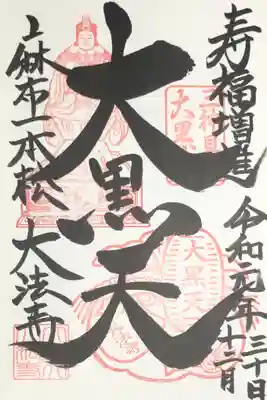 寿福増進
令和元年十二月三十日
大黒天
麻布一本松
大法寺
大黒天